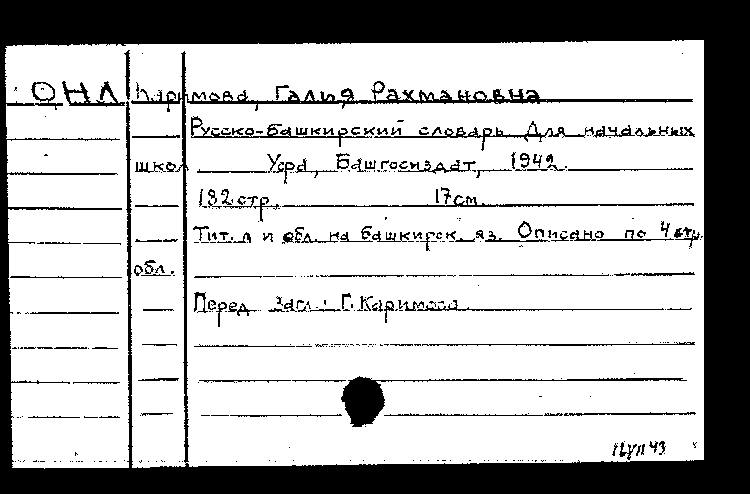 ОНЛ Каримова, Галия Рахмановна
Русско-башкирский словарь Для начальных
школ Уфа, Башгосиздат, 1942.
182 стр. 17 см.
Тит. л и обл. на башкирск. яз. Описано по 4 стр.
обл.
Перед загл.: Г. Каримова.